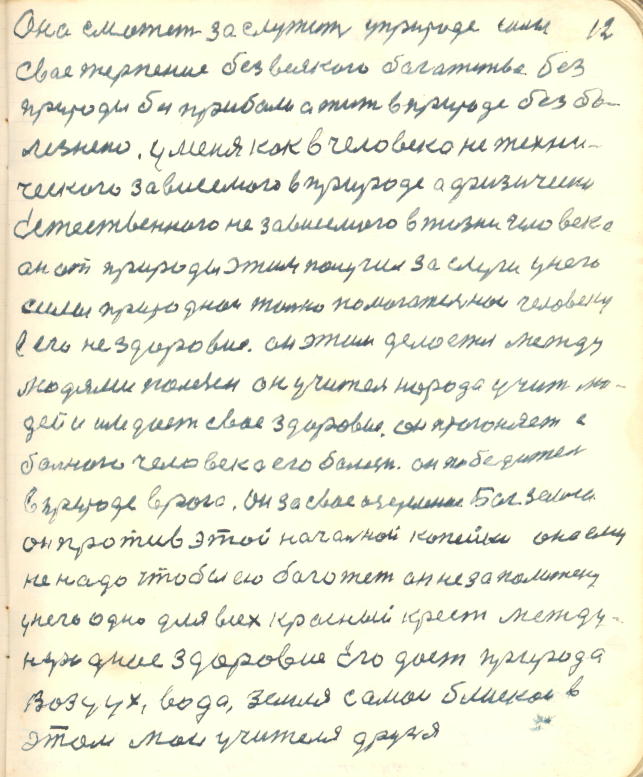 Она сможет заслужить у природе силы 12
свае терпение без всякого богатства. Без
природы бы прибыли а жит в природе без бо-
лезнено. у меня как в человека не техни-
ческого зависемого в природе а физически
Естественного не зависемого в жизни человека
он от природы этим получил заслуги у него
силы природнои толко помогателнои человеку
в его не здоровие. он этим делается между
людями полезен он учител народа учит лю-
дей и им дает свае здоровие. он прогоняет с
болного человека его болезн. он победител
в природе врага. Он за свае Бог земли
он против этой началной копейки она ему
не надо чтобы ею боготет он не за положену
у него одно для всех красный крест между-
нородное здоровие Его дает природа
Воздух, вода, земля самои блискои в
этом мои учителя друзя